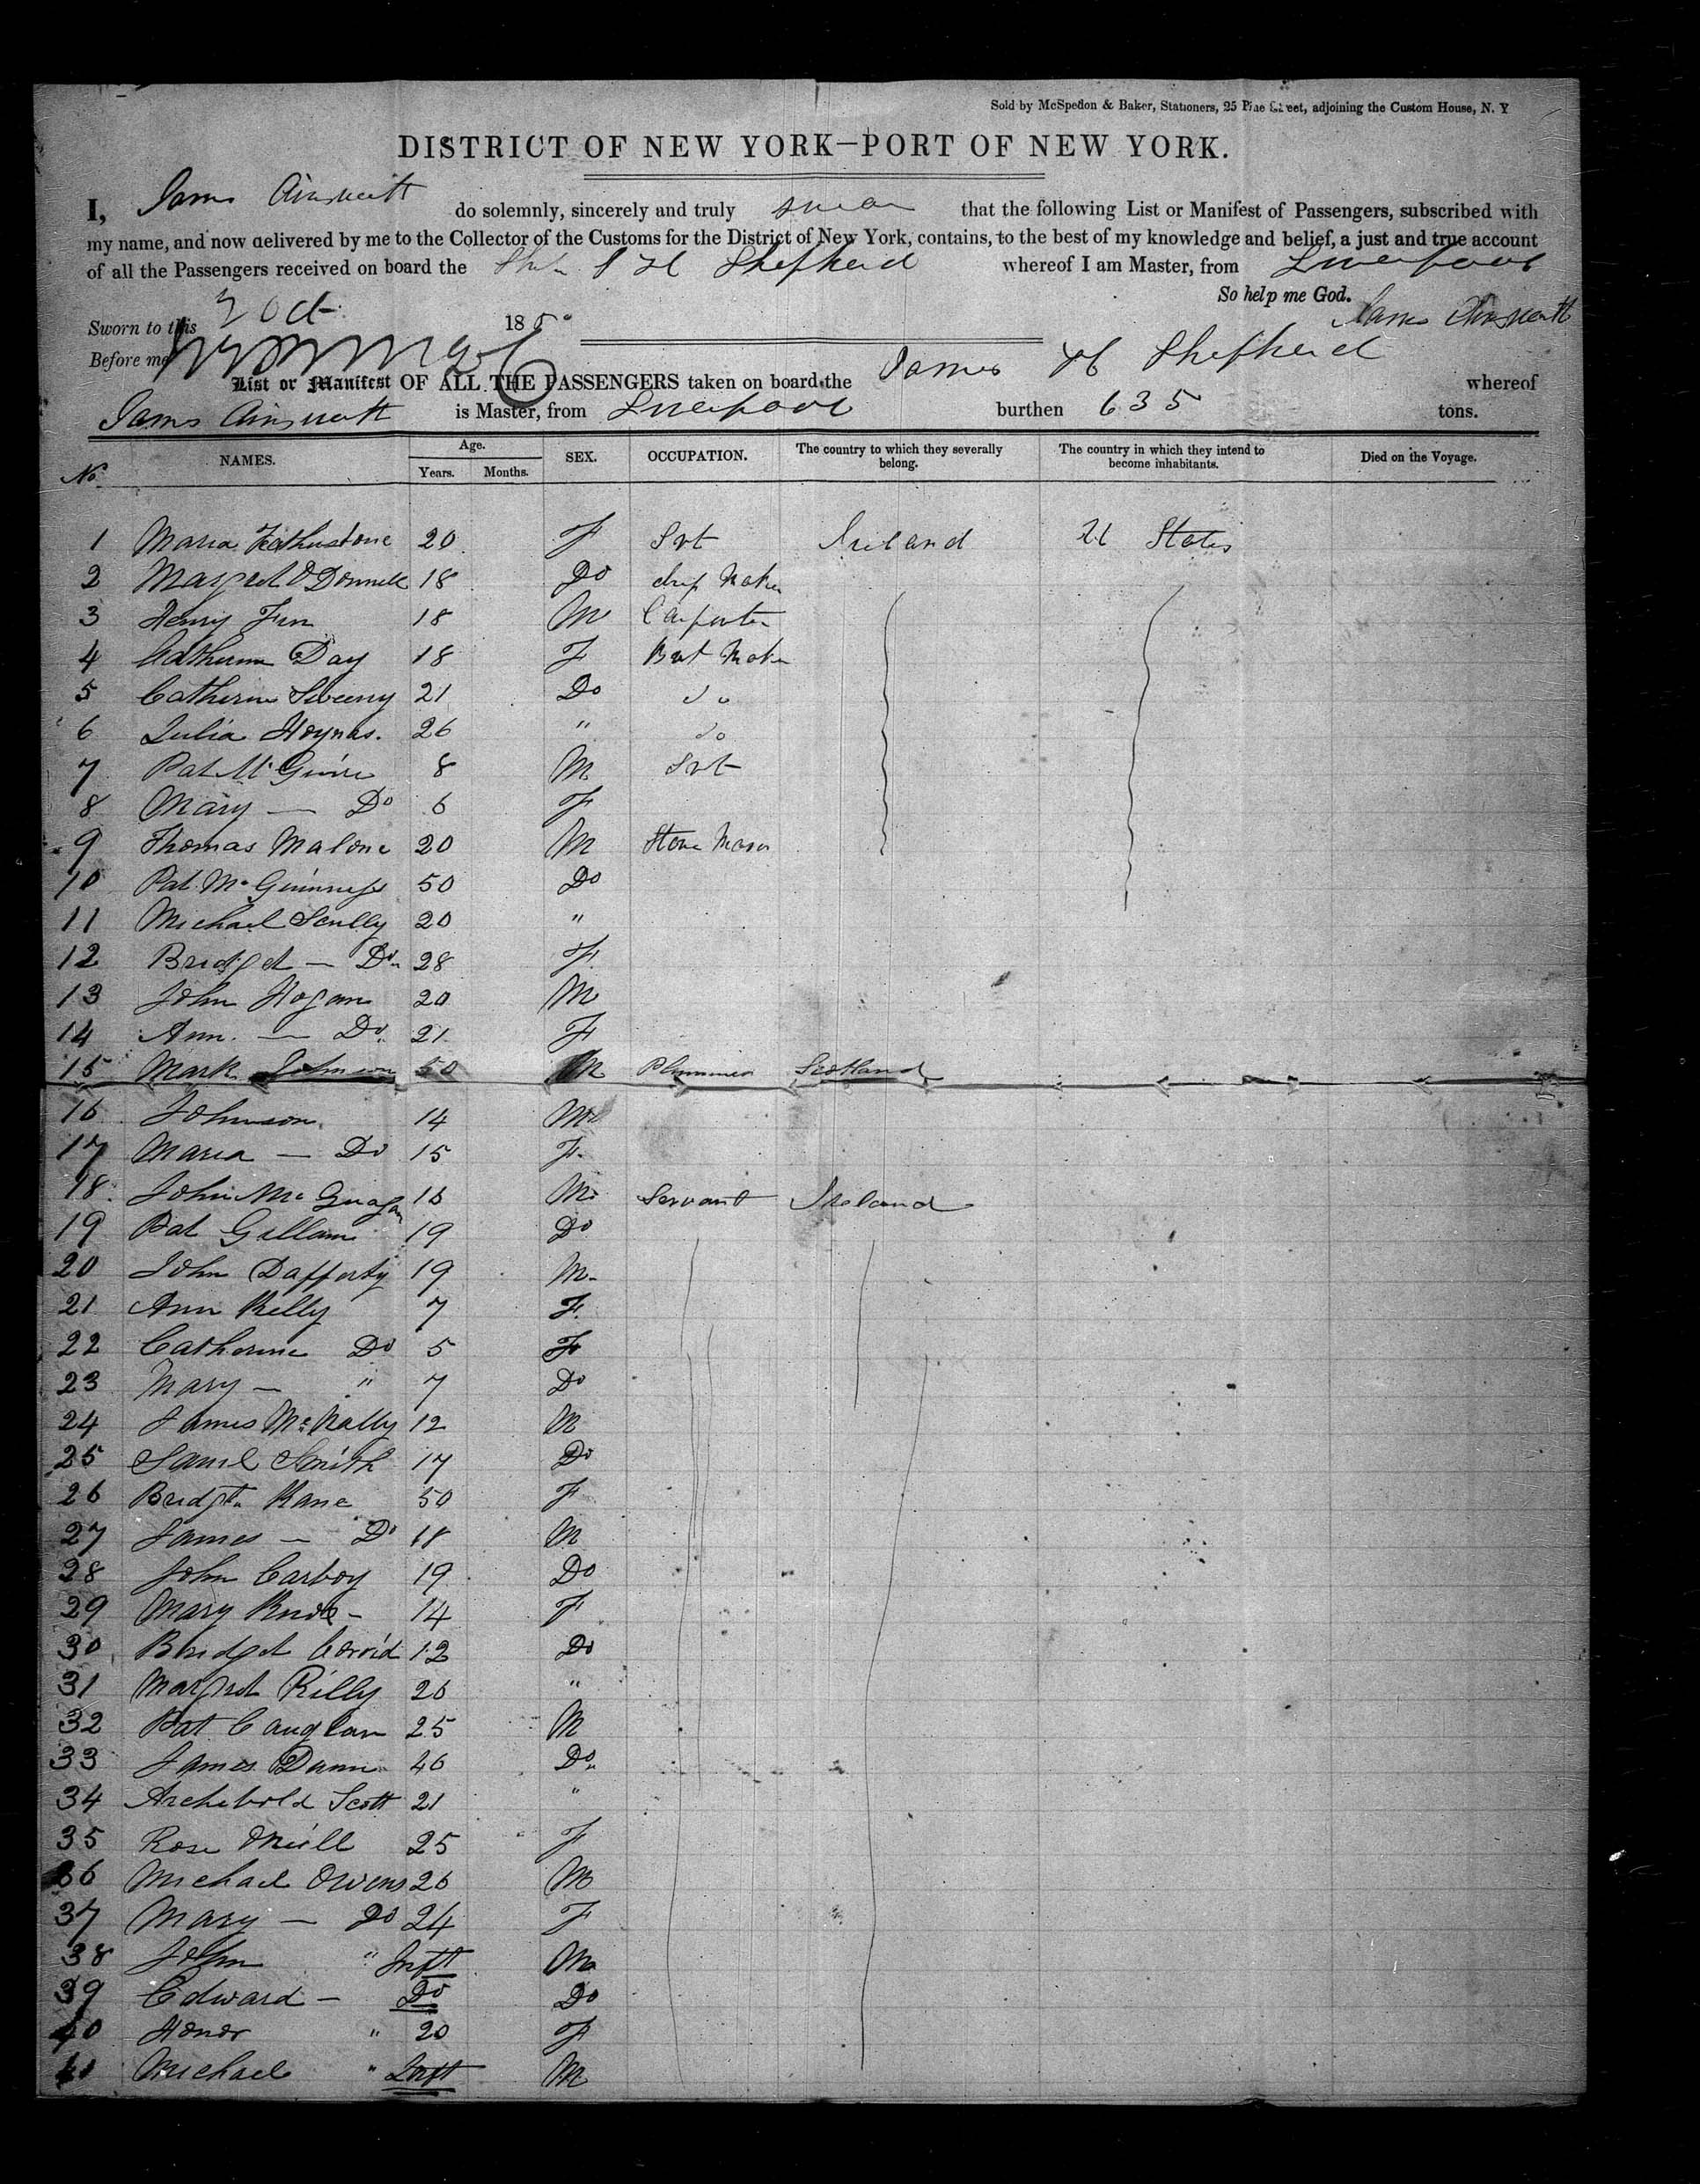 Sold by McSpedon & Baker, Stationers, 25 Pine Street, adjoining the Custom House, N. Y
DISTRICT OF NEW YORK—PORT OF NEW YORK.
I, James Ainsworth do solemnly, sincerely and truly swear that the following List or Manifest of Passengers, subscribed with
my name, and now delivered by me to the Collector of the Customs for the District of New York, contains, to the best of my knowledge and belief, a just and true account
of all the Passengers received on board the Ship J H Shepherd whereof I am Master, from Liverpool
So help me God.
Sworn to this 3 Oct 1850 James Ainsworth
Before me
List or Manifest OF ALL THE PASSENGERS taken on board the James H Shepherd whereof
James Ainsworth is Master, from Liverpool burthen 635 tons.
No. NAMES. Age. Years. Months. SEX. OCCUPATION. The country to which they severally belong. The country in which they intend to become inhabitants. Died on the Voyage.
1 Maria Fethustone 20 F Svt Ireland U States
2 Margret O'Donnell 18 Do Maker
3 Henry 18 M Carpenter
4 Catherine Day 18 F Maker
5 Catherine Sweeny 21 Do Do
6 Julia Hoynas. 26 " Do
7 Pat McGuire 8 M Svt
8 Mary — Do 6 F
9 Thomas Malone 20 M Stone Mason
10 Pat McGuinness 50 Do
11 Michael Scully 20 "
12 Bridget — Do 28 F
13 John Hogan 20 M
14 Ann. — Do. 21 F
15 Mark Johnson 50 M Plummer Scotland
16 Johnson 14 M
17 Maria — Do 15 F.
18 John Mc 16 M Servant Ireland
19 Pat Gillam 19 Do
20 John Dafferty 19 M
21 Ann Kelly 7 F.
22 Catherine Do 5 F
23 Mary — " 7 Do
24 James McNally 12 M
25 Saml Smith 17 Do
26 Bridgt. Kane 50 F
27 James — Do 18 M
28 John Carboy 19 Do
29 Mary 14 F
30 Bridget 12 Do
31 Margret Rilly 26 "
32 Pat Cauglan 25 M
33 James Dunn 46 Do
34 Archebold Scott 21 "
35 Rose ONeill 25 F
36 Michael Owens 26 M
37 Mary — Do 24 F
38 John " Inft M
39 Edward — Do Do
40 Honor " 20 F
41 Michael " Inft M